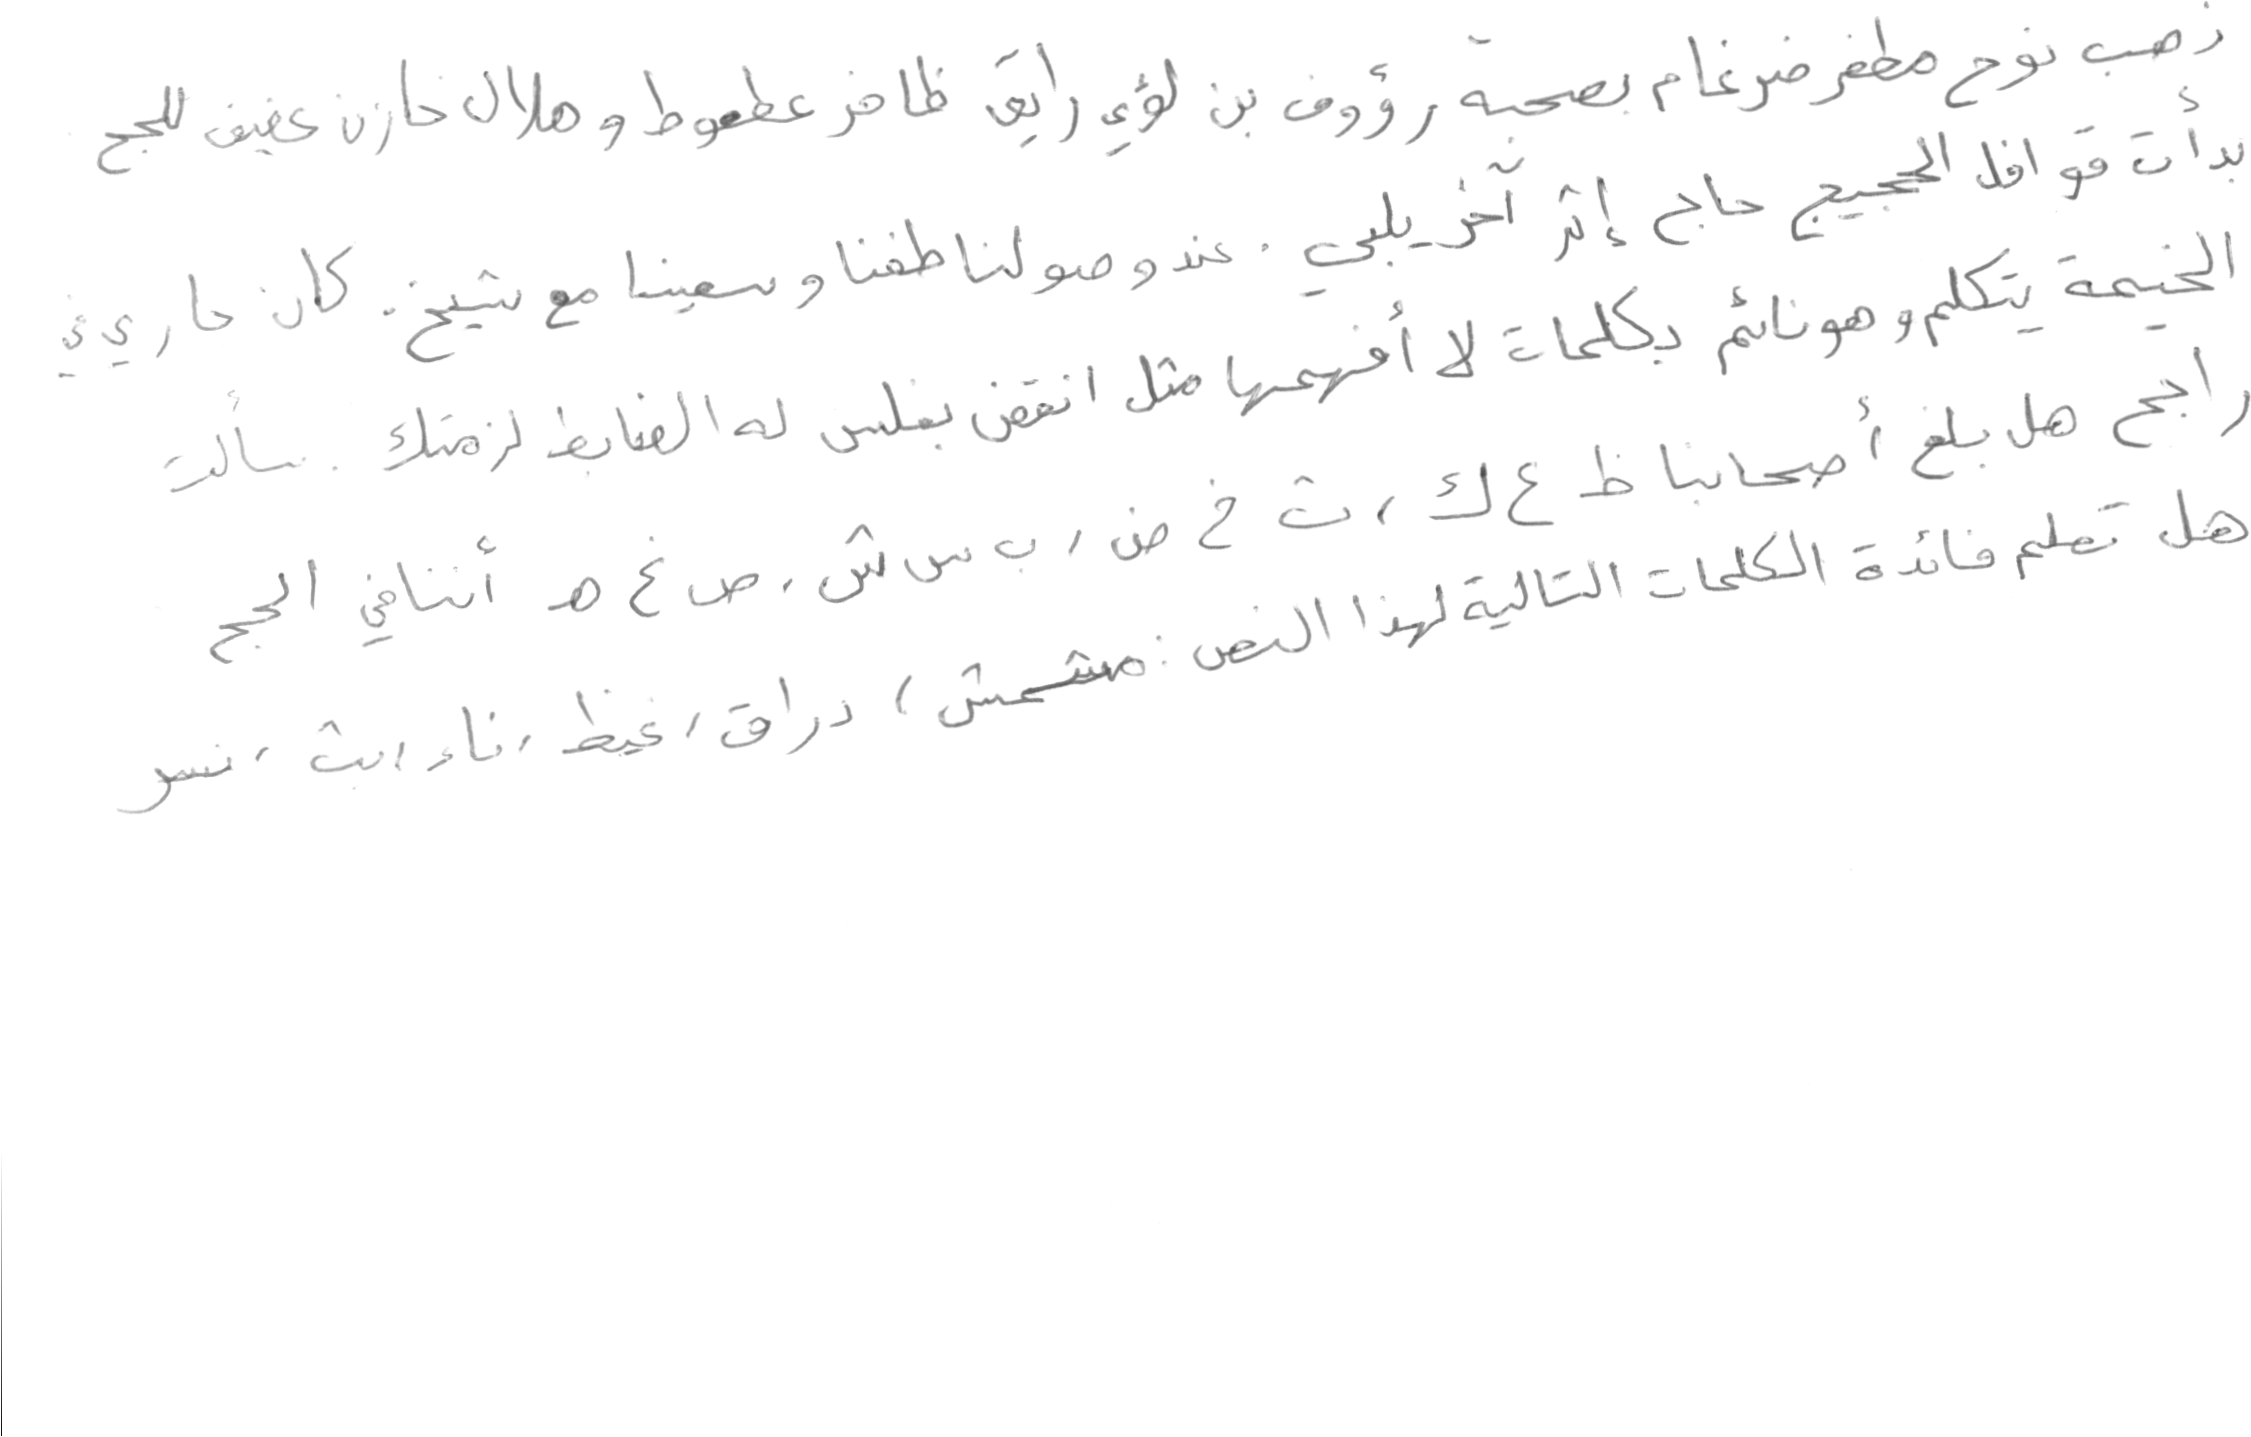 ذهب نوح مظفر ضرغام بصحبة رؤوف بن لؤي رايق ظافر عطعوط و هلال خازن عفيف للحج
بدأت قوافل الحجيج حاج إثر آخر يلبي . عند وصولنا طفنا و سعينا مع شيخ . كان جاري في
الخيمة يتكلم و هو نائم بكلمات لا أفهمها مثل انقض بغلس له الضابط لزمتك . سألت
راجح هل بلغ أصحابنا ظ ع ك ، ث خ ض ، ب س ش ، ص غ ه أننا في الحج
هل تعلم فائدة الكلمات التالية لهذا النص : مشمش ، دراق ، غيظ ، ناء ، بث ، نسر